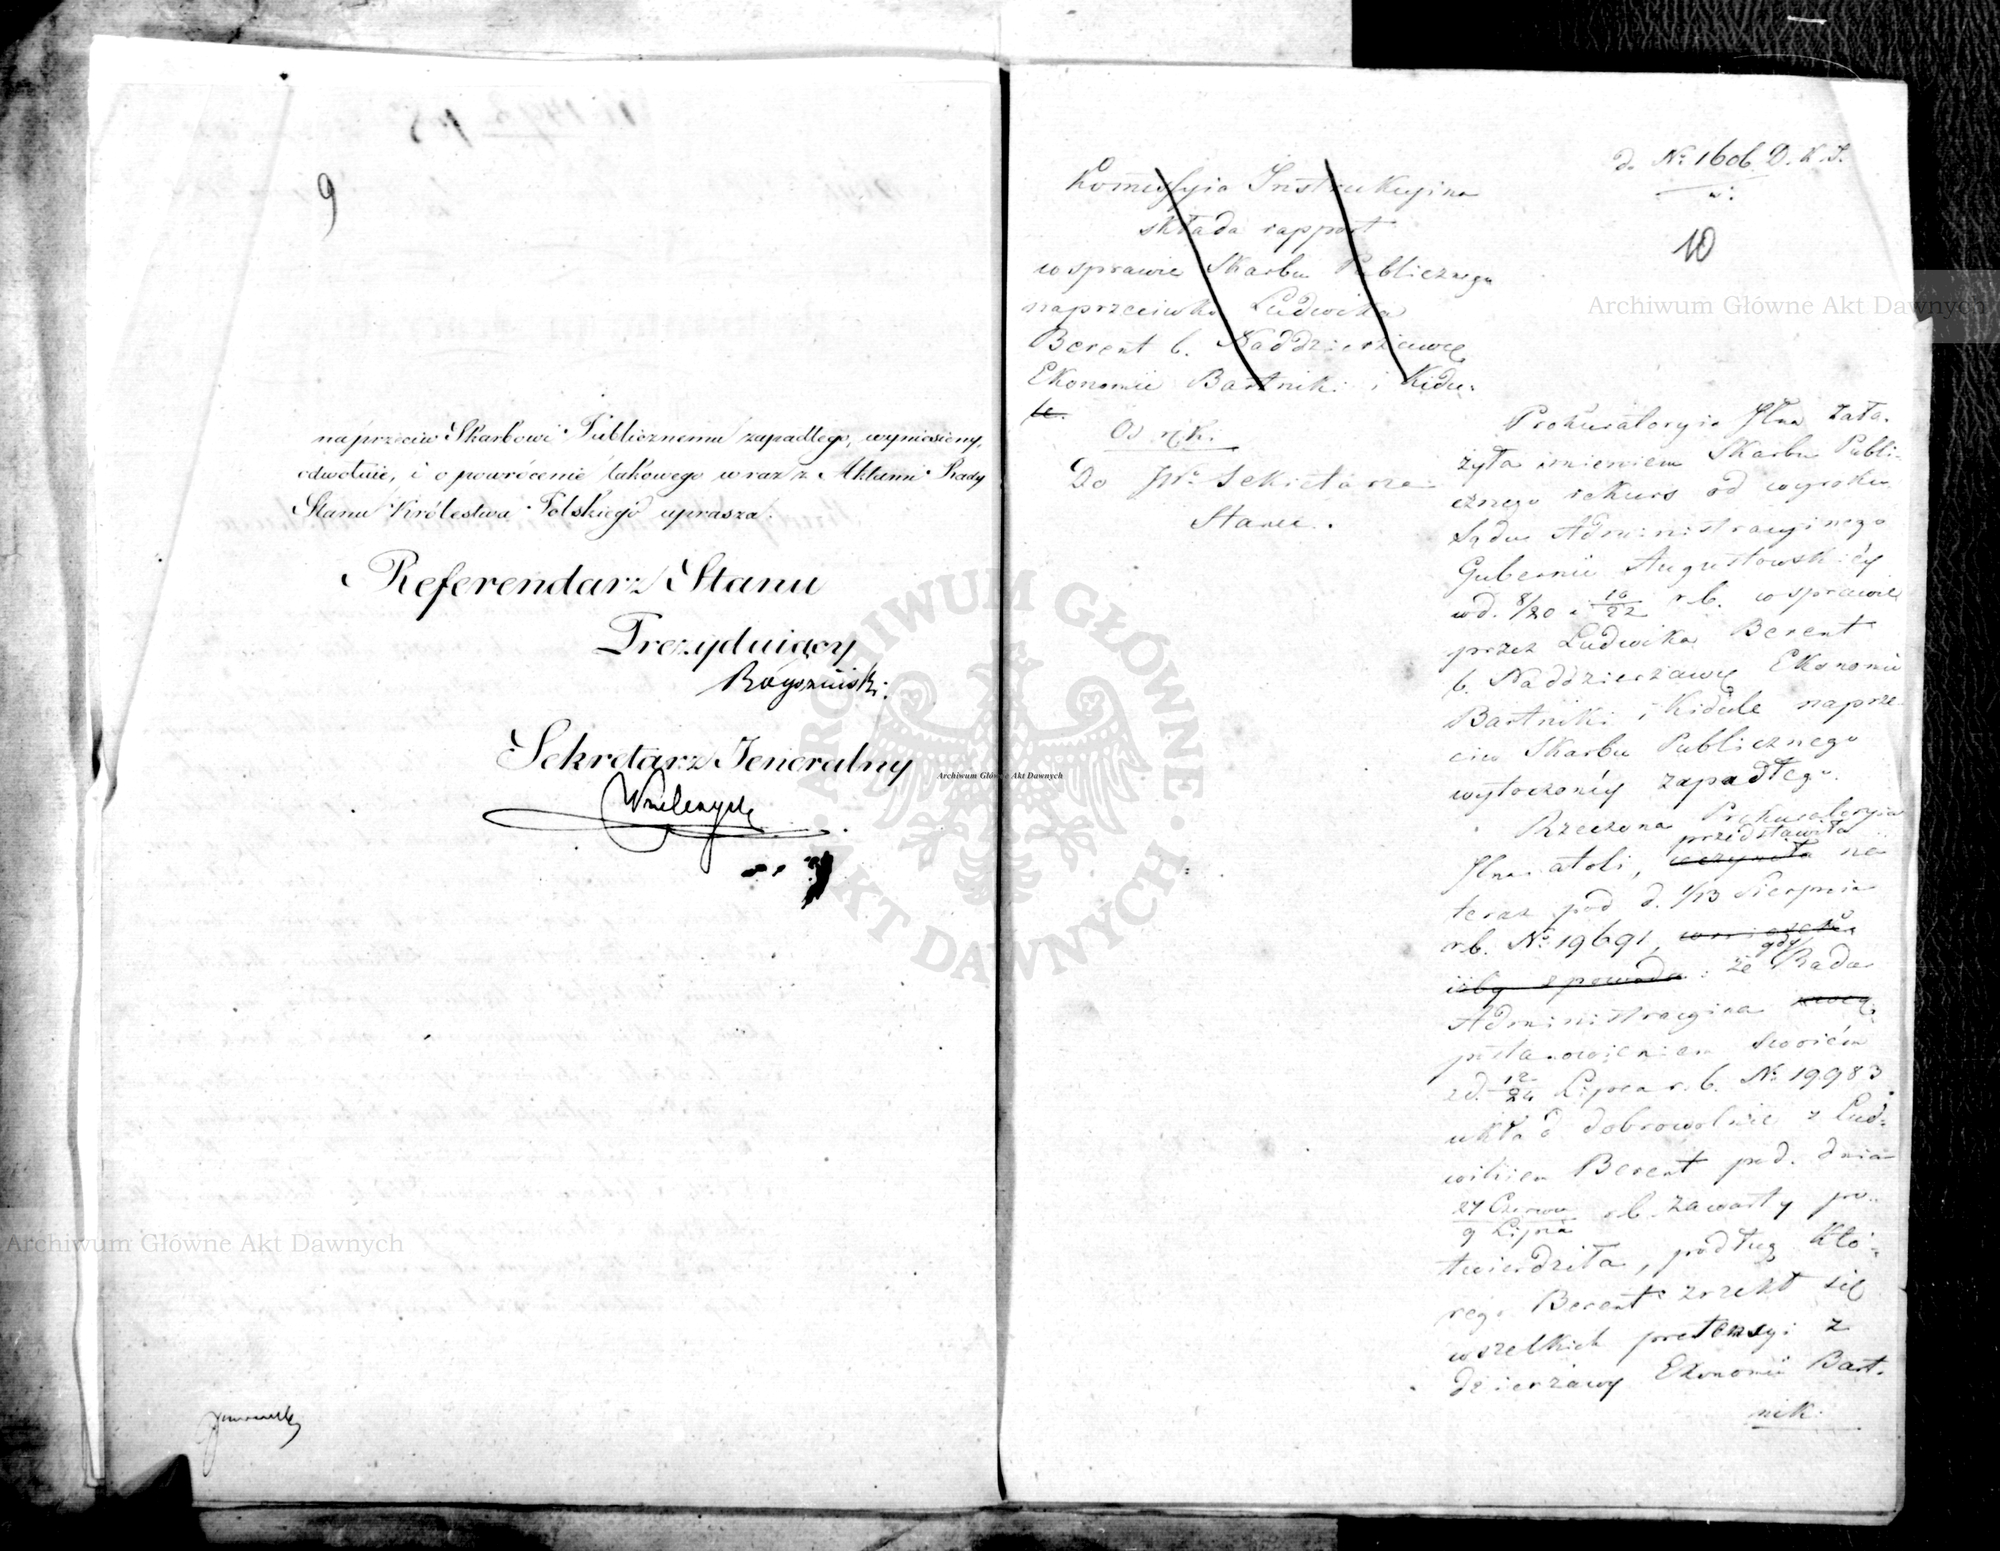 9
naprzeciw Skarbowi Publicznemu zapadłego, wyniesiony,
odwołuie, i o powrócenie takowego wraz z Aktami Rady
Stanu Królestwa Polskiego uprasza.
Referendarz Stanu
Prezyduiący
Sekretarz Jeneralny
do Nr. 1606 D. K. I.
10
Kommissyia Instrukcyina
składa rapport
w sprawie Skarbu Publicznego
naprzeciwko Ludwika
Berent b. Naddzierżawcę
Ekonomii Bartniki i Kidu-
le.
Do JW. Sekretarza
Stanu.
Prokuratorya Jlna zało-
żyła imieniem Skarbu Publi-
cznego rekurs od wyroku
Sądu Administracyinego
Gubernii Augustowskiéy
w d. 8/20 i 10/22 r. b. w sprawie
przez Ludwika Berent
b. Naddzierżawcę Ekonomii
Bartniki i Kidule naprze-
ciw Skarbu Publicznego
wytoczonéy zapadłego.
Rzeczona Prokuratorya
przedstawiła
Jlna atoli, uczyniła na
teraz pod d. 1/13 Sierpnia
r. b. Nr. 19691, wniosek
gdy
iżby z powodu: że Rada
Administracyina
postanowieniem swoiém
z d. 12/24 Lipca r. b. Nr. 19983
układ dobrowolnie z Lud-
wikiem Berent pod. dnia
27 Czerwca
9 Lipca r. b. zawarty po-
twierdziła, podług któ-
rego Berent zrzekł się
wszelkich pretensyi z
dzierżawy Ekonomii Bart-
nik
Archiwum Główne Akt Dawnych
Archiwum Główne Akt Dawnych
Archiwum Główne Akt Dawnych
ARCHIWUM GŁÓWNE AKT DAWNYCH